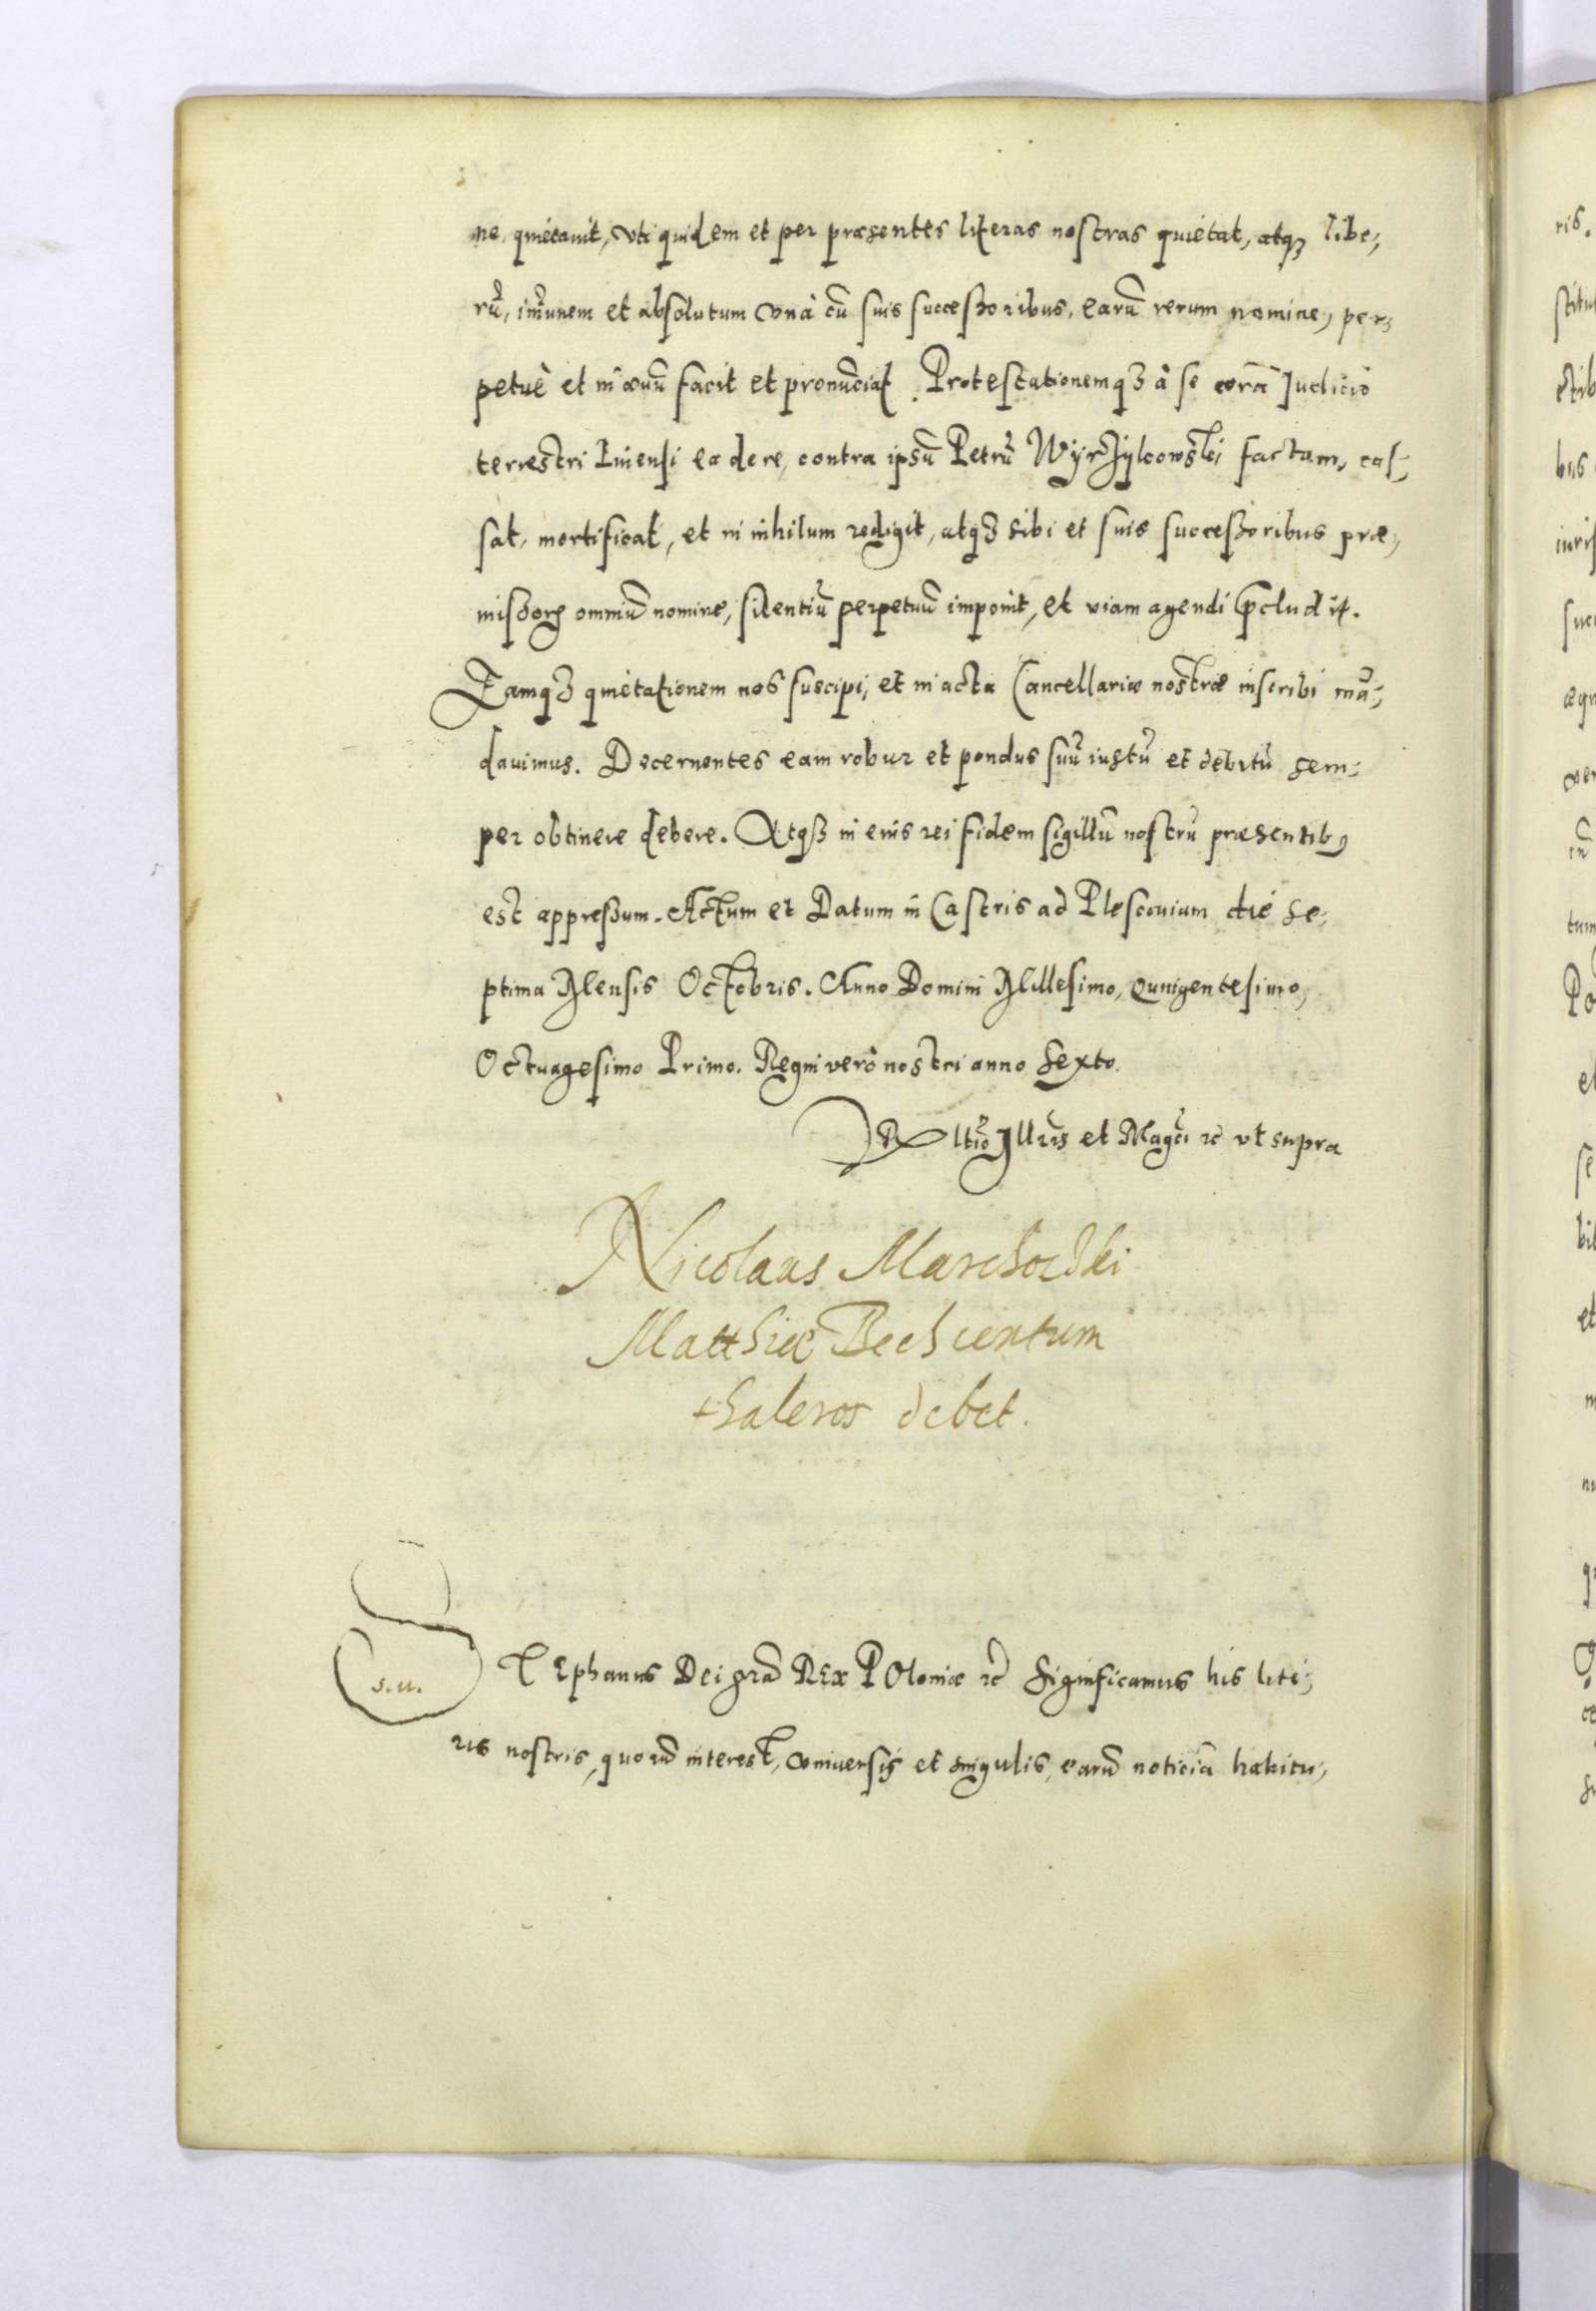 ne, quietavit, vti quidem et per præsentes literas nostras quietat, atq₃ libe,,
rũ, im̃unem et absolutum vnà cũ suis successoribus, earũ rerum nomine, per,,
petuè et in æuũ facit et pronũciat. Protestationemq₃ à se corã Iudicio
terrestri Liuensi ea de re, contra ipsũ Petrũ factam, cas,,
sat, mortificat, et in nihilum redigit, atq₃ sibi et suis successoribus præ,,
missorꝝ omniũ nomine, silentiũ perpetuũ imponit, et viam agendi p̃cludit.
Eamq₃ quietationem nos suscipi, et in acta Cancellariæ nostræ inscribi mã,,
dauimus. Decernentes eam robur et pondus suũ iustũ et debitũ sem,,
per obtinere debere. Atq₃ in eius rei fidem sigillũ nostrũ præsentibꝰ
est appressum. Actum et Datum in Castris ad Plescouium die Se,,
ptima Mensis Octobris. Anno Domini Millesimo, Quingentesimo,
Octuagesimo Primo. Regni verò nostri anno Sexto.
Rl̃tio Ill̃ris et Mag̃ci ꝛc̃ vt supra
Nicolaus Marchoczki
Matthiæ Bech centum
thaleros debet.
s.u.
Tephanus Dei gr̃a Rex Poloniæ ꝛc̃ Significamus his lite,,
ris nostris, quorũ interest, vniuersis et singulis, earũ noticiã habitu,,